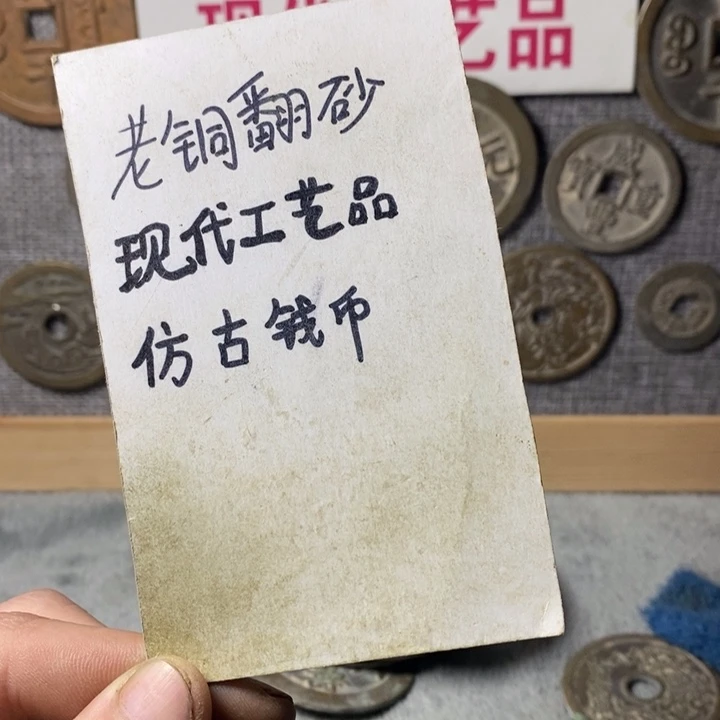 艺品
老铜翻砂
现代工艺品
仿古钱币